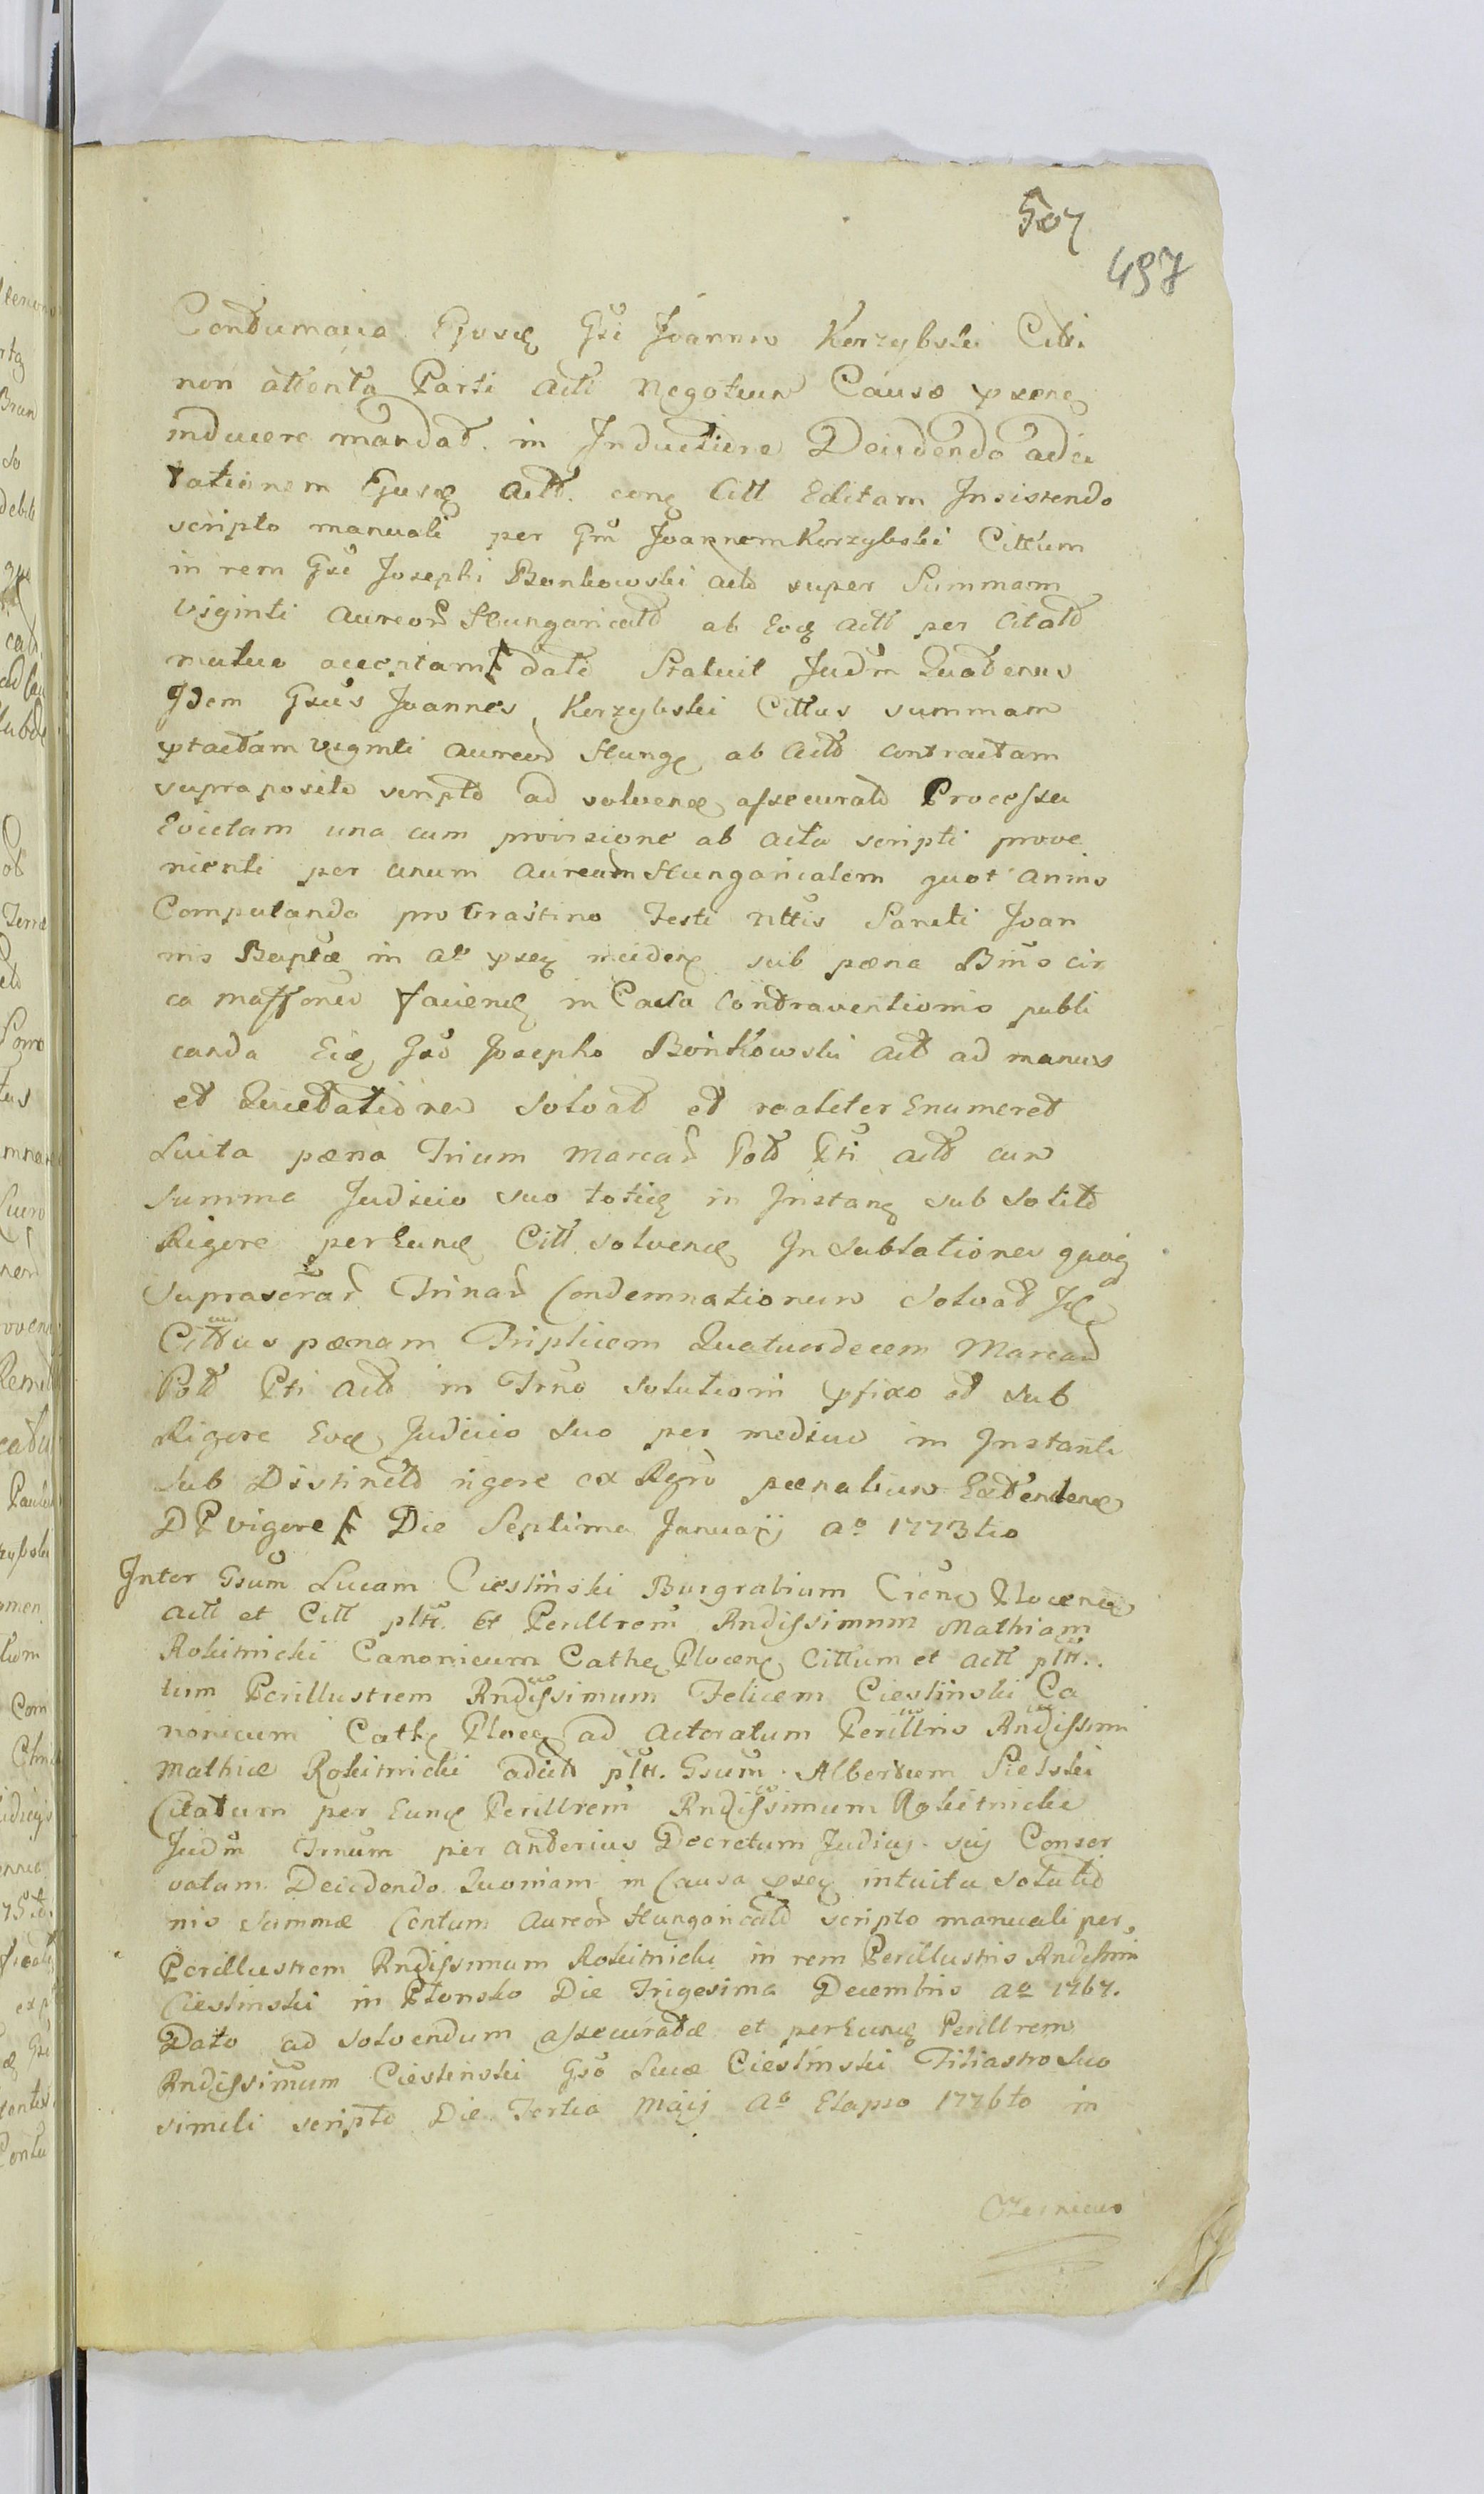 507
497
Contumacia Ejusq Gsi Joannis Korzybski Citti
non attenta Parti actt Negotium Causæ pxsenq
inducere mandat. in Inductiore Decidendo ad ci
tationem Ejusq Actt. cong Citt Editam Insistendo
scripto manuali per Gm Joannem Korzybski Cittum
in rem Gsi Josephi Bonkowski actt super Summam
Viginti aureor Hungaricalt ab Eoq actt per Citatt
mutuo acceptam datt Statuit Judm Quatenus
Idem Gsus Joannes Korzybski Cittus summam
ptactam Viginti aureor Hungq ab Actt contractam
suprapositt scriptt ad solvenq assecuratt Processu
Evictam una cum provisione ab actu scripti prove
nienti per unum aureum Hungaricalem quot annis
Computando pro Crastino Festi nttis Sancti Joan
nis Baptæ in at pxsq incidenq sub pæna Bnis cir
ca massones faciendq in Casu Contraventionis publi
canda Eidq Gso Josepho Bonkowski actt ad manus
et Quietationem Solvat et realiter Enumeret
Luita pæna Trium Marcar Pott Pti actt cum
Summa Judicio suo totiq in Instanq sub Solitt
Rigore per Eunq Citt solvenq In Sublationem quoq
Suprascrar Trinar Condemnationum Solvat Iq
Cittus pænam Triplicem Quatuordecem Marcar
Pott Pti Actt in Trno Solutioni pfixo et Sub
Rigore Eoq Judicio Suo per medium in Instanti
Sub Distinctt rigore ex Regro pænalium Extendenq
DP vigore Die Septima Januarij Ao 1773tio
Inter Gsum Lucam Ciesliński Burgrabium Cienq Plocenq
Actt et Citt pltt. Et Perillrem Rndissimum Mathiam
Rokitnicki Canonicum Catheq Plocenq Cittum et Actt pltt.
tum Perillustrem Rndissimum Felicem Ciesliński Ca
nonicum Cathq Plocq ad Actoratum Perillris Rndissimi
Mathiæ Rokitnicki adcitt pltt. Gsum Albertum Sielski
Citatum per Eunq Perillrem Rndissimum Rokitnicki
Judm Trnum per anterius Decretum Judicij sui Conser
vatum Decidendo Quoniam in Causa pxsq intuitu Solutio
nis Summæ Centum Aureor Hungaricalt scripto manuali per
Perillustrem Rndissimum Rokitnicki in rem Perillustris Rndissimi
Ciesliński in Płonsko Die Trigesima Decembris Ao 1767.
Dato ad Solvendum assecuratæ et per Eunq Perillrem
Rndissimum Ciesliński Gso Lucæ Ciesliński Filiastro Suo
simili scripto Die Tertia Maij Ao Elapso 1776to in